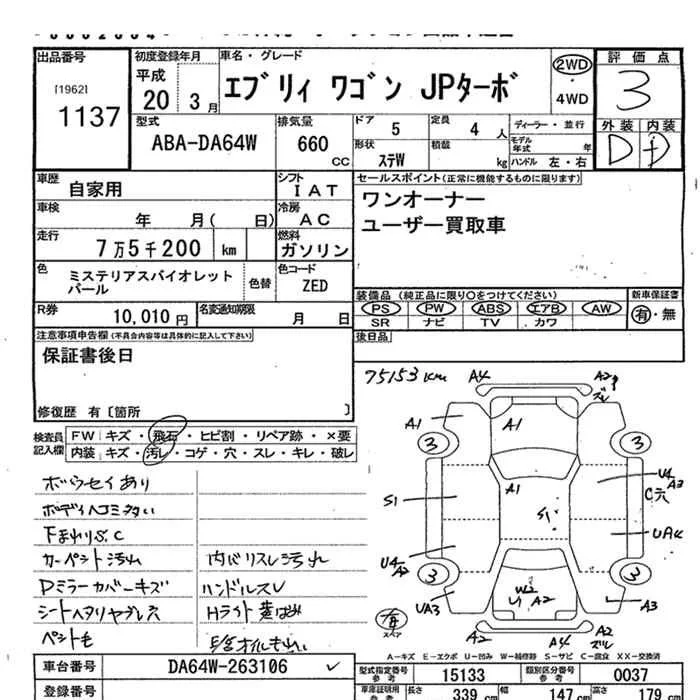 出品番号
[1962]
1137
初度登録年月
平成
20 3月
車名・グレード
エブリィ ワゴン JPターボ
2WD
・
4WD
評価点
3
外装 内装
D D
型式
ABA-DA64W
排気量
660
CC
ドア 5
定員 4 人
形状
ステW
積載
kg
ディーラー・並行
モデル年式 年
ハンドル 左・右
車歴 自家用
シフト
IAT
車検 年 月( 日)
冷房
AC
走行 7万5千200 km
燃料
ガソリン
色 ミステリアスバイオレット
パール
色替
色コード
ZED
R券 10,010円
名変通知期限 月 日
セールスポイント(正常に機能するものに限ります)
ワンオーナー
ユーザー買取車
装備品 (純正品に限り○をつけてください)
PS PW ABS エアB AW
SR ナビ TV カワ
新車保証書
有・無
後日品
注意事項申告欄(不具合内容等は具体的に記入して下さい)
保証書後日
修復歴 有〔箇所 〕
検査員
記入欄
FW キズ・飛石・ヒビ割・リペア跡・×要
内装 キズ・汚レ・コゲ・穴・スレ・キレ・破レ
ボウセイあり
ボディ凹コミ多い
カーペット汚れ
Dミラーカバーキズ
内バリスレ汚れ
ハンドルスレ
75153km
A4
A2
A1
A1
3
3
A1
U4
A3
C穴
S1
S1
UA4
U4
A2
3
3
W2
U1 A2
UA3
A3
スペア
A2
A4
A2
A−キズ E−エクボ U−凹み W−補修跡 S−サビ C−腐食 XX−交換済
車台番号 DA64W-263106
登録番号
型式指定番号
参考
15133
類別区分番号
参考
0037
車庫証明用
長さ 339 cm
幅 147 cm
高さ 179 cm